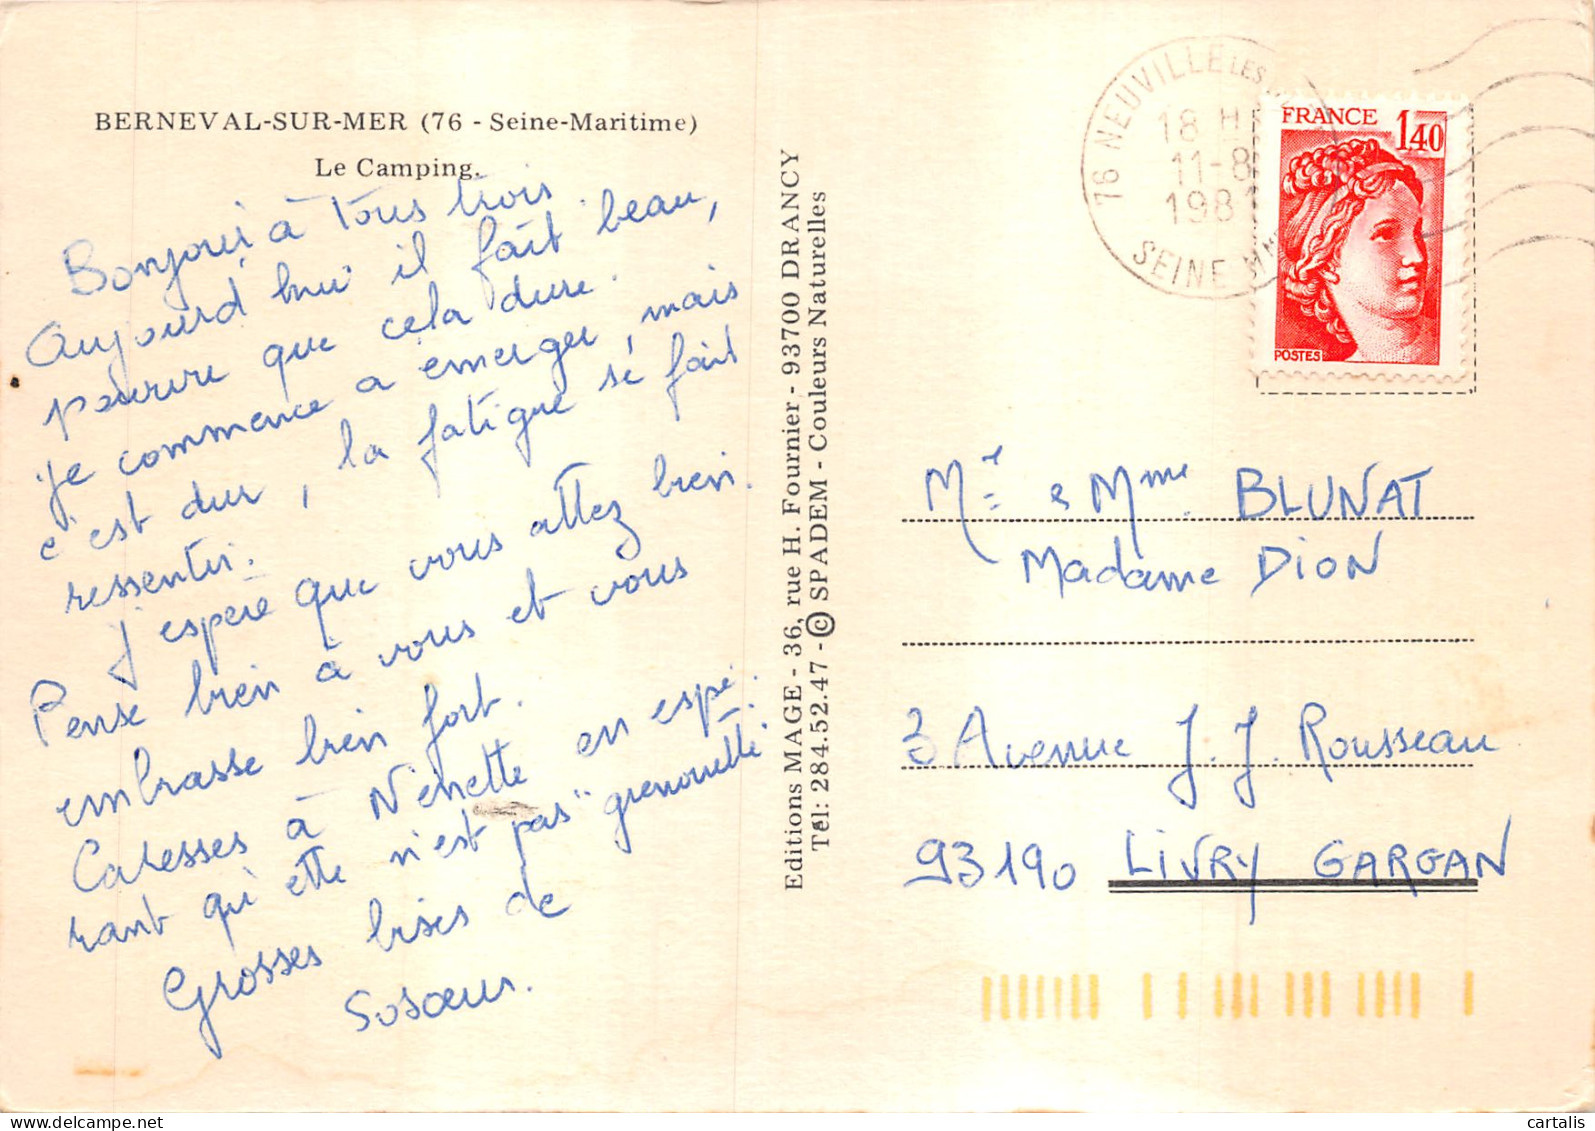 BERNEVAL-SUR-MER (76 - Seine-Maritime)
Le Camping.
Bonjour à Tous trois.
Aujourd'hui il fait beau,
pourvu que cela dure.
je commence a emerger, mais
c'est dur, la fatigue se fait
ressentir.
J'espère que vous allez bien.
Pense bien à vous et vous
embrasse bien fort.
Caresses à Nénette en espé-
rant qu'elle n'est pas "grenouille"
Grosses bises de
Sosoeur.
Editions MAGE - 36, rue H. Fournier - 93700 DRANCY
Tél: 284.52.47 - © SPADEM - Couleurs Naturelles
76 NEUVILLE LES
18 H
11-8
198
SEINE MME
FRANCE 1,40
POSTES
Mr & Mme BLUNAT
Madame DION
3 Avenue J. J. Rousseau
93190 LIVRY GARGAN
cartalis